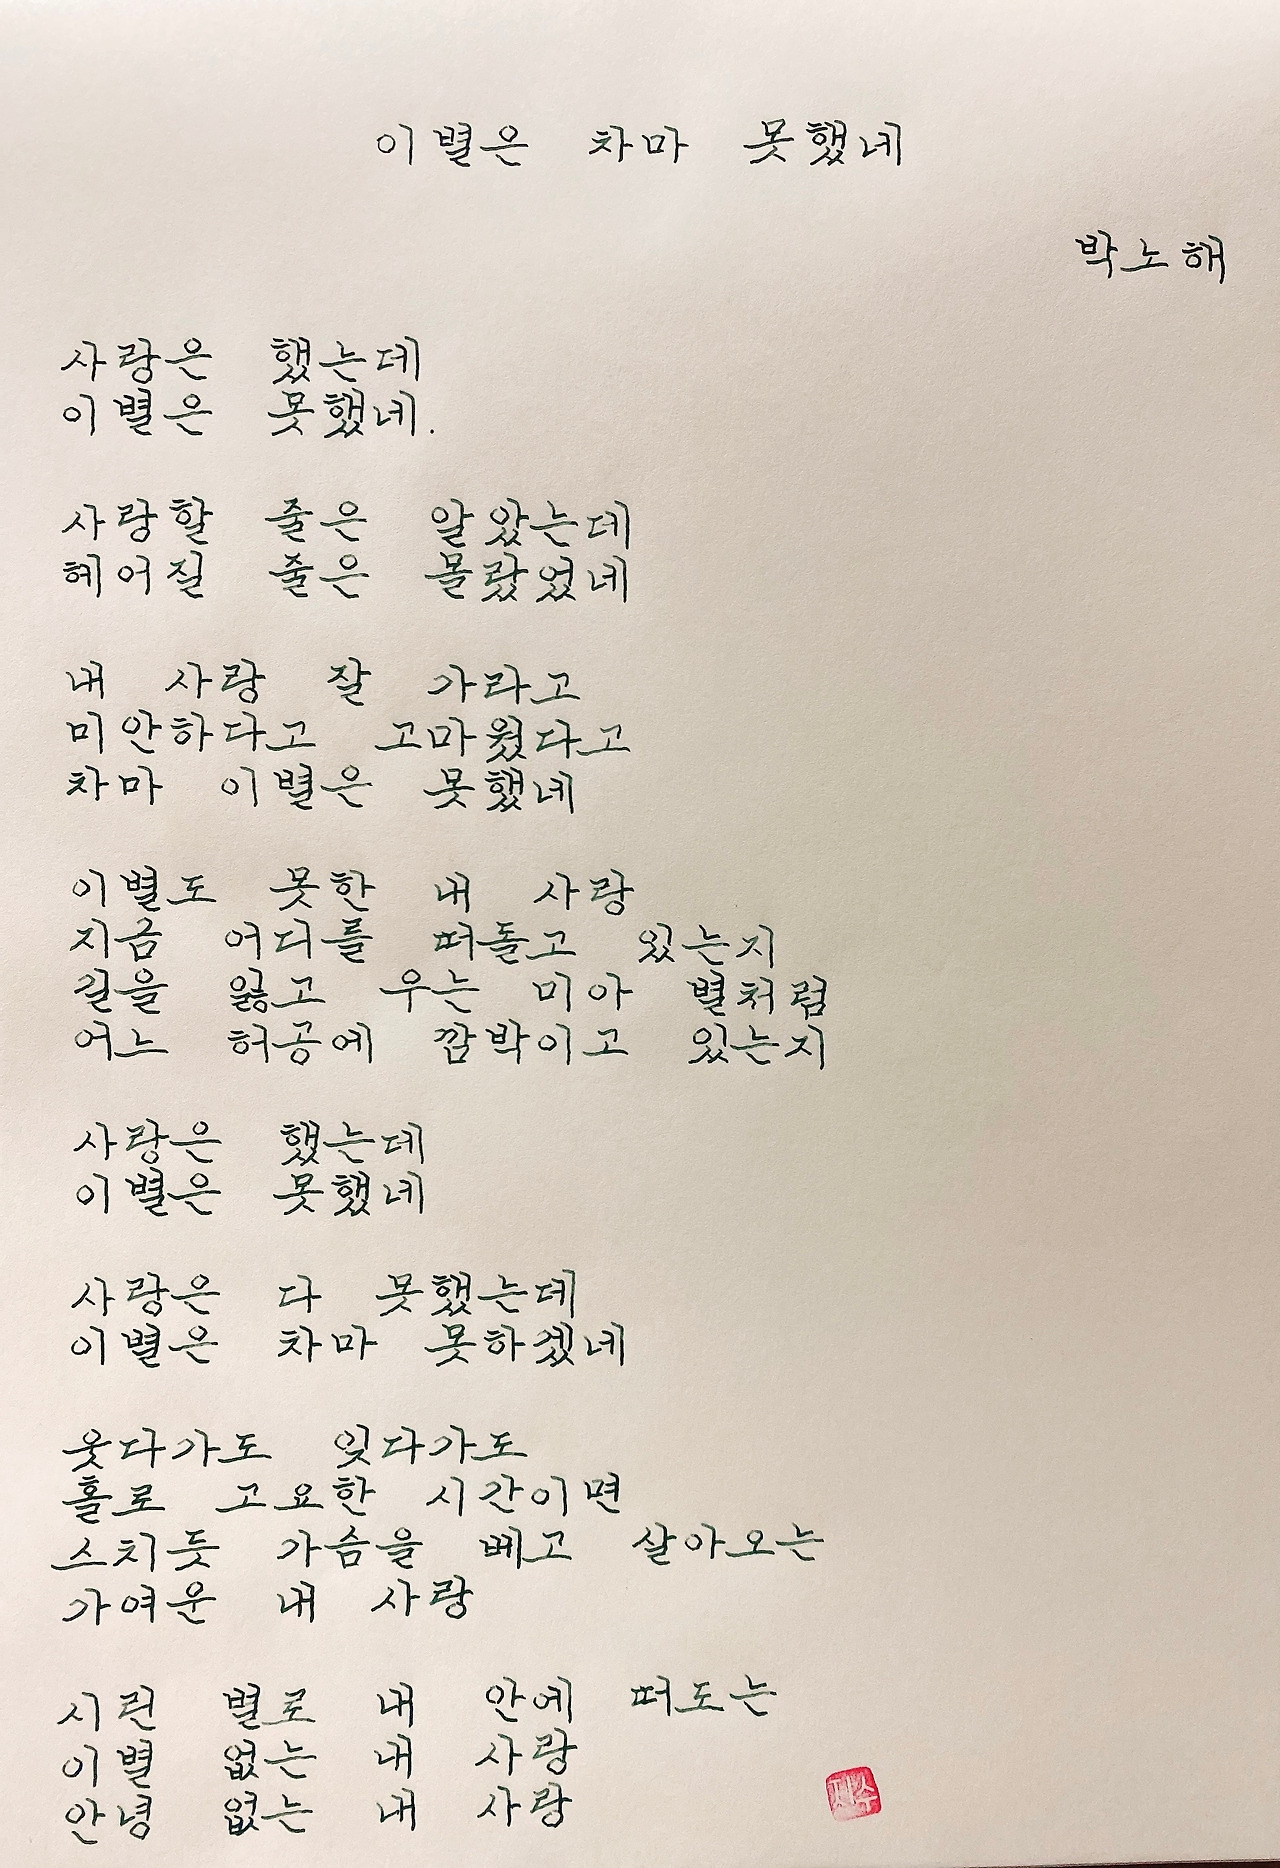 이별은 차마 못했네
박노해
사랑은 했는데
이별은 못했네.
사랑할 줄은 알았는데
헤어질 줄은 몰랐었네
내 사랑 잘 가라고
미안하다고 고마웠다고
차마 이별은 못했네
이별도 못한 내 사랑
지금 어디를 떠돌고 있는지
길을 잃고 우는 미아 별처럼
어느 허공에 깜박이고 있는지
사랑은 했는데
이별은 못했네
사랑은 다 못했는데
이별은 차마 못하겠네
웃다가도 잊다가도
홀로 고요한 시간이면
스치듯 가슴을 베고 살아오는
가여운 내 사랑
시린 별로 내 안에 떠도는
이별 없는 내 사랑
안녕 없는 내 사랑